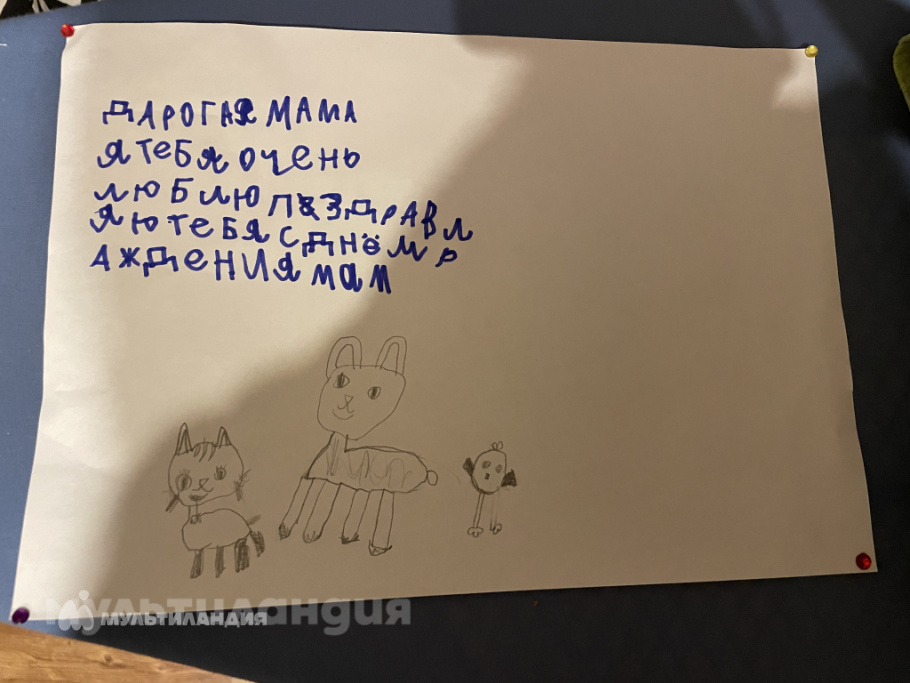 ДАРОГАЯ МАМА
Я ТЕБЯ ОЧЕНЬ
ЛЮБЛЮ ПАЗДРАВЛ
ЯЮ ТЕБЯ С ДНЁМ Р
АЖДЕНИЯ МАМ
МУЛЬТИЛАНДИЯ
мультиландия